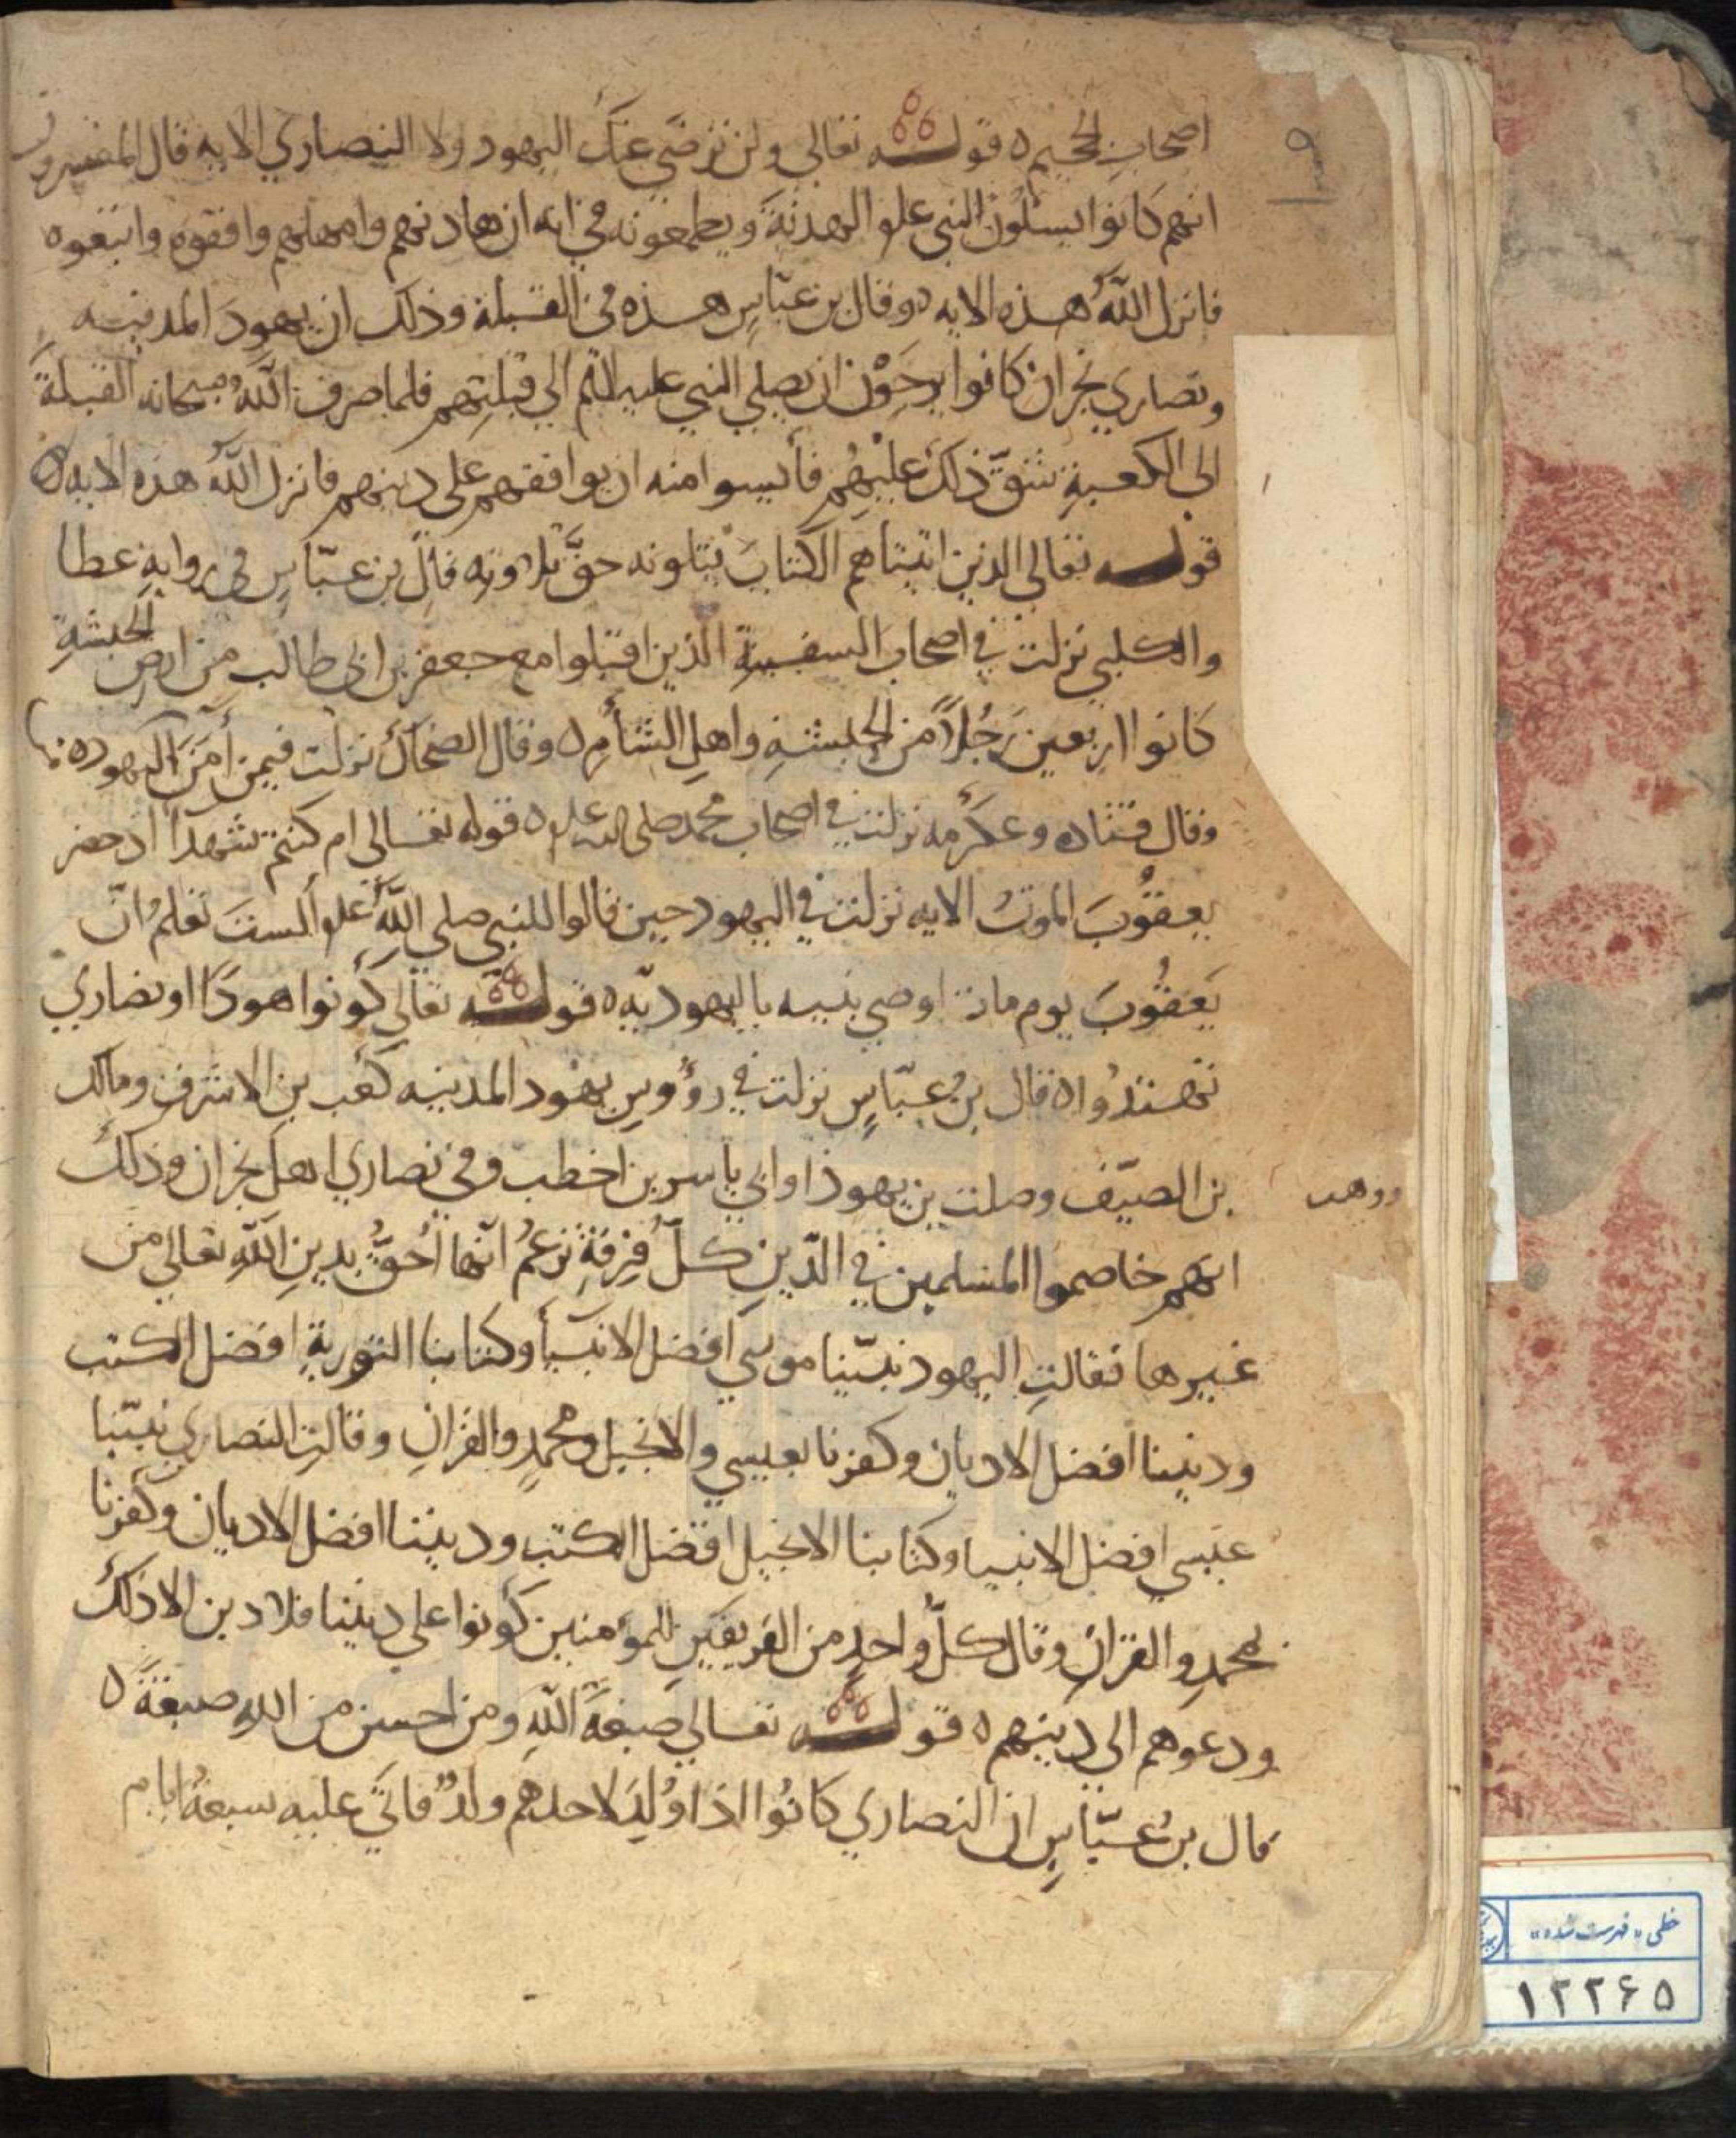 اصحاب الجحيم ه قوله تعالى ولن ترضى عنك اليهود ولا النصاري الايه قال المفسرون
انهم كانوا يسئلون النبى علم الهدنة ويطمعونه في انه ان هادنهم وامهلهم وافقوه واتبعوه
فانزل الله هذه الايه ه وقال بن عباس هذه في القبلة وذلك ان يهود المدينه
ونصاري نجران كانوا يرجون ان يصلي النبي عليه السلم الي قبلتهم فلما صرف الله سبحانه القبلة
الي الكعبة شق ذلك عليهم فأيسوا منه ان يوافقهم على دينهم فانزل الله هذه الايه ه
قوله تعالي الذين اتيناهم الكتاب يتلونه حق تلاوته قال بن عباس في رواية عطا
والكلبي نزلت في اصحاب السفينة الذين اقبلوا مع جعفر بن ابي طالب من ارض الحبشة
كانوا اربعين رجلا من الحبشة واهل الشأم ه وقال الضحاك نزلت فيمن أمن من اليهود ه
وقال قتاده وعكرمه نزلت في اصحاب محمد صلى الله علم ه قوله تعالى ام كنتم شهدآ اذ حضر
يعقوب الموت الايه نزلت في اليهود حين قالوا للنبي صلي الله علم ألست تعلم ان
يعقوب يوم مات اوصي بنيه باليهوديه ه قوله تعالي كونوا هودا او نصاري
تهتدوا ه قال بن عباس نزلت في رؤوس يهود المدينه كعب بن الاشرف ومالك
بن الصيف وصلت بن يهوذا وابي ياسر بن اخطب وفي نصاري اهل نجران وذلك
ووهب
انهم خاصموا المسلمين في الدين كل فرقة تزعم انها أحق بدين الله تعالي من
غيرها فقالت اليهود نبينا موسي افضل الانبيأ وكتابنا التورية افضل الكتب
وديننا افضل الاديان وكفرنا بعيسي والانجيل ومحمد والقران وقالت النصاري نبينا
عيسي افضل الانبيا وكتابنا الانجيل افضل الكتب وديننا افضل الاديان وكفرنا
بمحمد والقران وقال كل واحد من الفريقين للمؤمنين كونوا علي ديننا فلا دين الا ذلك
ودعوهم الي دينهم ه قوله تعالي صبغة الله ومن احسن من الله صبغة ه
قال بن عباس ان النصاري كانوا اذا ولد لاحدهم ولد فاتي عليه سبعة ايام
خطی «فهرست شده»
١٢٢۶۵